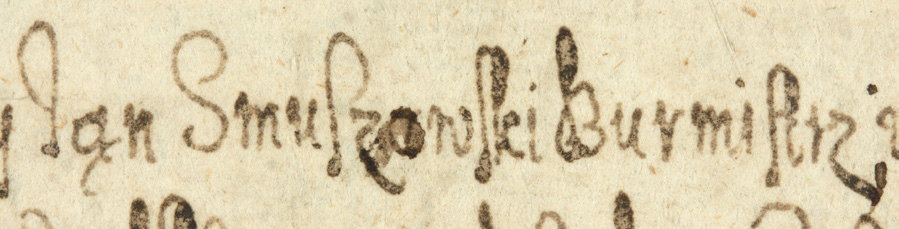 Ian Smuszowski Burmistrz